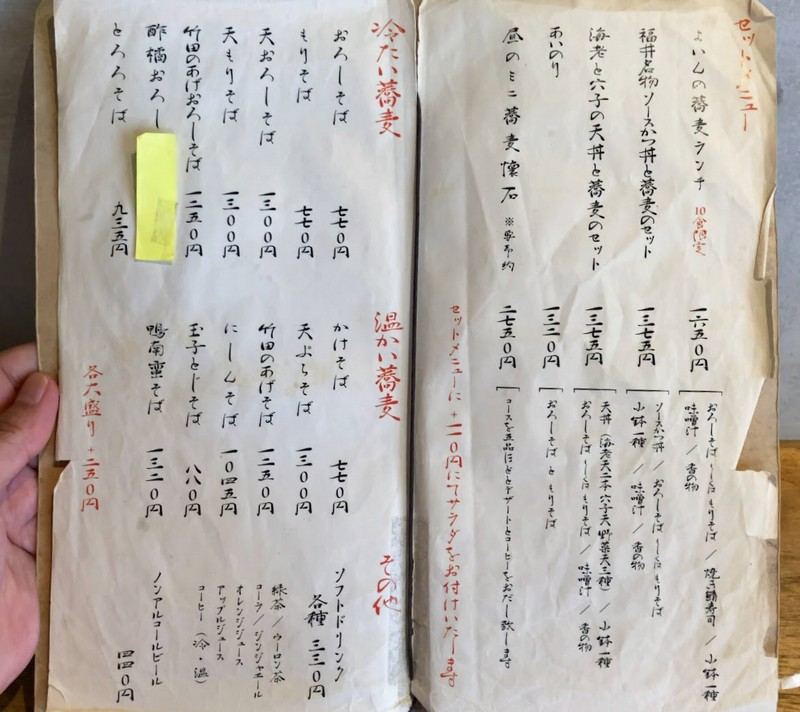 セットメニュー
よいんの蕎麦ランチ 10食限定 一六五〇円
おろしそばもしくはもりそば / 焼き鯖寿司 / 小鉢一種
味噌汁 / 香の物
福井名物ソースかつ丼と蕎麦のセット 一三七五円
ソースかつ丼 / おろしそばもしくはもりそば
小鉢一種 / 味噌汁 / 香の物
海老と穴子の天丼と蕎麦のセット 一三七五円
天丼(海老天二本 穴子天 野菜天三種) / 小鉢一種
おろしそばもしくはもりそば / 味噌汁 / 香の物
あいのり 一三二〇円
おろしそばともりそば
昼のミニ蕎麦懐石 ※要予約 二七五〇円
コースを五品にとどデザートとコーヒーをおだし致します
セットメニューに+一一〇円にてサラダをお付けいたします
冷たい蕎麦
おろしそば 七七〇円
もりそば 七七〇円
天おろしそば 一三〇〇円
天もりそば 一三〇〇円
竹田のあげおろしそば 一二五〇円
酢橘おろし
とろろそば 九三五円
温かい蕎麦
かけそば 七七〇円
天ぷらそば 一三〇〇円
竹田のあげそば 一二五〇円
にしんそば 一〇四五円
玉子とじそば 八八〇円
鴨南蛮そば 一三二〇円
各大盛り+二五〇円
その他
ソフトドリンク
各種 三三〇円
緑茶/ウーロン茶
コーラ/ジンジャエール
オレンジジュース
アップルジュース
コーヒー(冷・温)
ノンアルコールビール
四四〇円